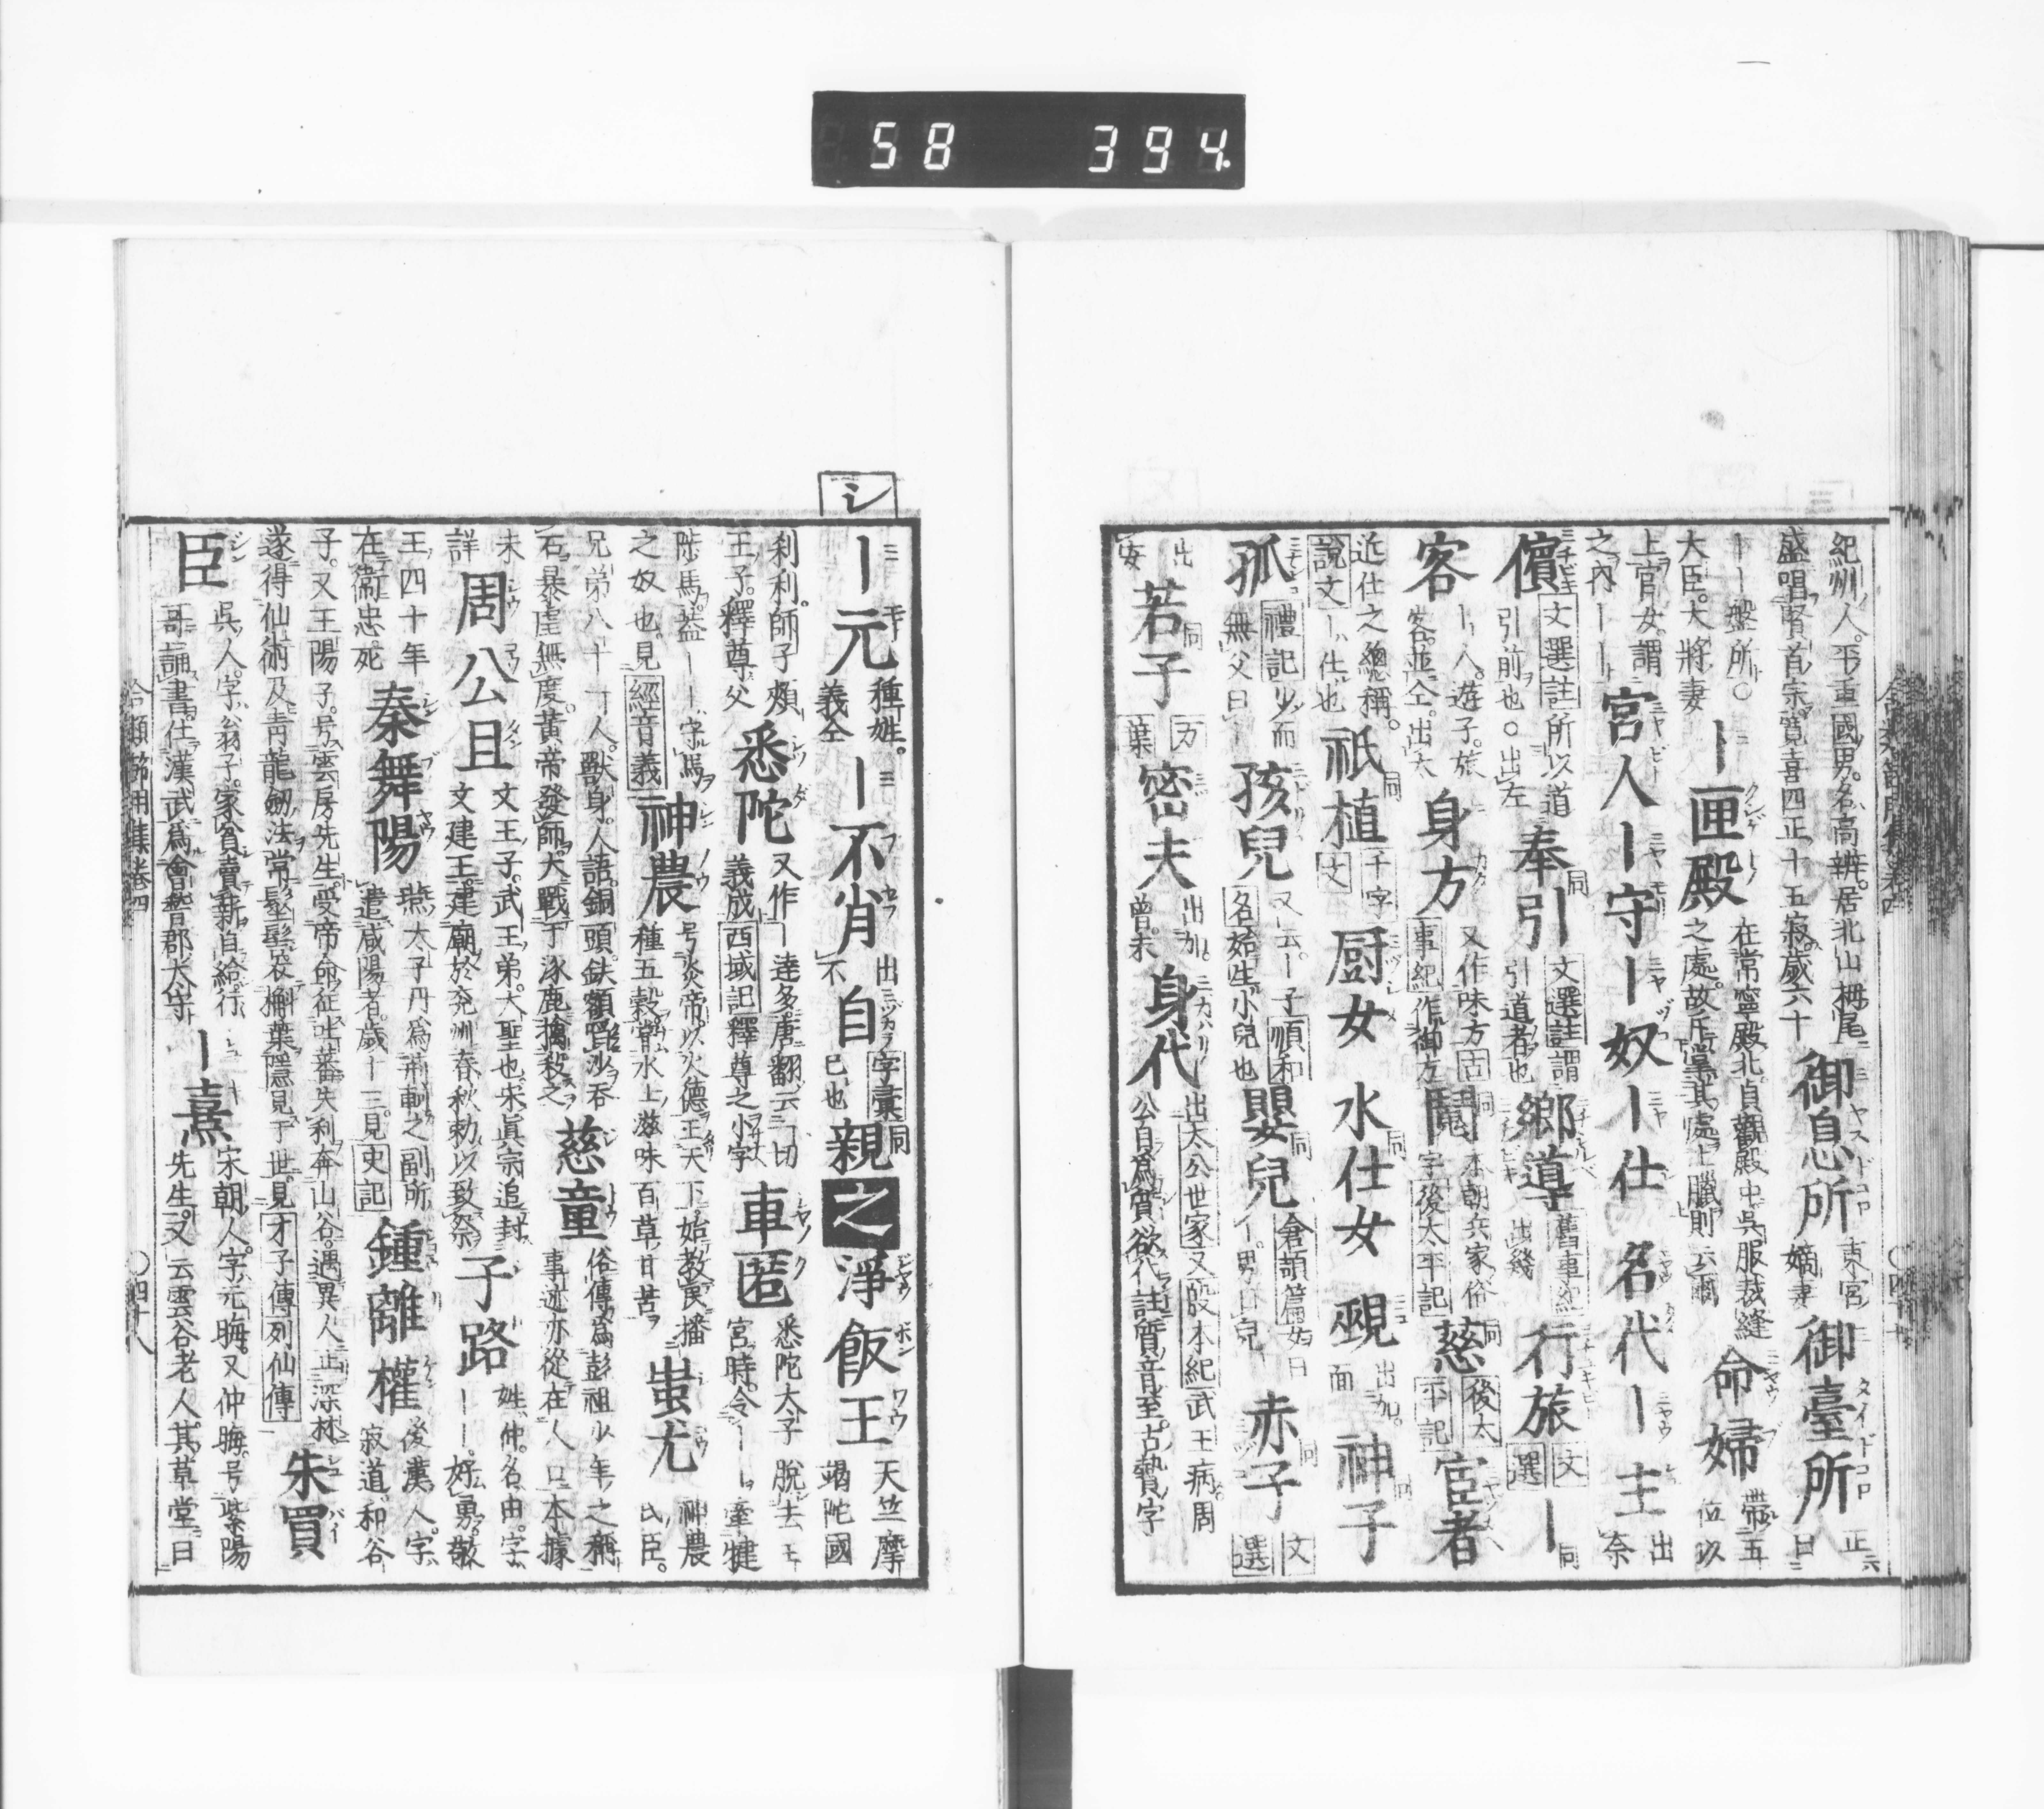 58 394
紀州人。平重國男。名高辨。居北山栂尾
盛唱賢首宗。寛喜四正十五寂。歳六十
御息所 東宮嫡妻 御臺所 正六日
ーー盤所〇
大臣。大將妻
ー匣殿 在常寧殿北。貞觀殿中。呉服裁縫
之處。故
命婦 帶五位以
上官女。謂
之内ーー
宮人 ー守 ー奴 ー仕 名代 ー主 出奈
儐 文選註所以道
引前也〇出左
奉引 文選註謂
引道者也
鄉導 出幾 行旅 文選 ー
客 ー人。遊子。旅
客。並仝。出太
身方 又作味方 古
事紀作御方
鬩 本朝兵家俗
字 後太平記
慈 後太平記 宦者
近仕之總稱。
說文ー仕也
祇植 千字文 厨女 水仕女 覡 出加。面 神子
孤 禮記少而
無父曰ー
孩兒 又云ー子 順和
名始生小兒也
嬰兒 倉頡篇女曰
ー。男曰兒
赤子 文選
出安
若子 万葉 密夫 出加。
曾。未
身代 出太公世家又殷本紀武王病周
公自爲質欲代註質音至。古贄字
シ
ー元 種姓。義仝 ー不肖 出不 自 字彙
己也
親 之 淨飯王 天竺摩
竭陀國
刹利。師子頰
王子。釋尊父
悉陀 又作ー達多。唐翻云一切
義成 西域記 釋尊之小字
車匿 悉陀太子脫去王
宮時。令ーー牽犍
陟馬。蓋ーー字馬
之奴也。見經音義
神農 号炎帝。以火德王天下。始教民播
種五穀。常水上滋味百草甘苦
蚩尤 神農
氏臣。
兄弟八十一人。獸身。人語。銅頭。鉄額。吞
石。暴虐無度。黃帝發師。大戰于涿鹿擒殺之
慈童 俗傳爲彭祖少年之稱
事迹亦從在人口本據
未詳
周公旦 文王子。武王弟。大聖也。宋眞宗追封
文建王。建廟於兗洲春秋勅以致祭
子路 姓仲。名由。字
ーー。好勇。敢
王四十年
在衞忠死
秦舞陽 燕太子丹爲荊軻之副所
遣咸陽者。歲十三。見史記
鍾離權 後漢人。字
寂道。和谷
子。又王陽子。号雲房先生。受帝命征吐蕃失利奔山谷。遇異人
遂得仙術及靑龍劔法。常髽髻衣槲葉隱見于世。見才子傳列仙傳
朱買
臣 呉人。字翁子。家貧賣薪自給。行
哥誦書。仕漢武爲會替郡太守
ー熹 宋朝人。字元晦。又仲晦。号紫陽
先生。又云雲谷老人。其草堂曰
合類節用集卷四 〇四十八